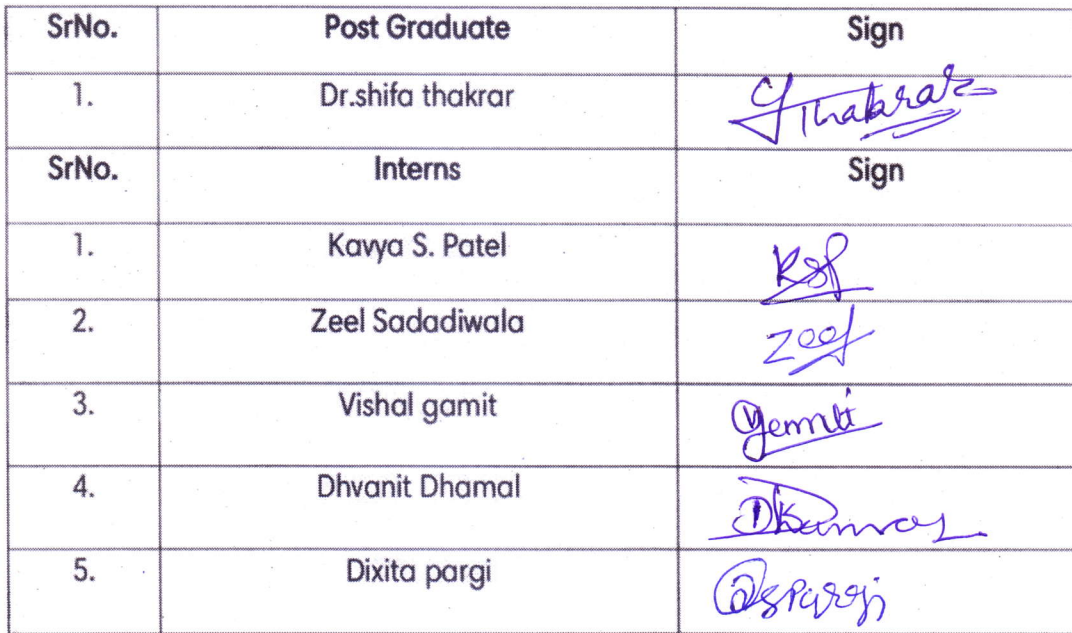 SrNo. Post Graduate Sign
1. Dr.shifa thakrar Thakrar
SrNo. Interns Sign
1. Kavya S. Patel KSP
2. Zeel Sadadiwala Zeel
3. Vishal gamit
4. Dhvanit Dhamal
5. Dixita pargi